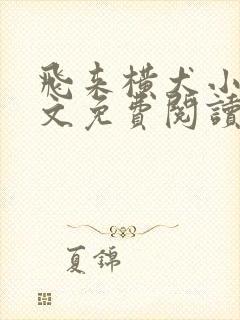 飛来横犬小
文免費閱讀
夏錦